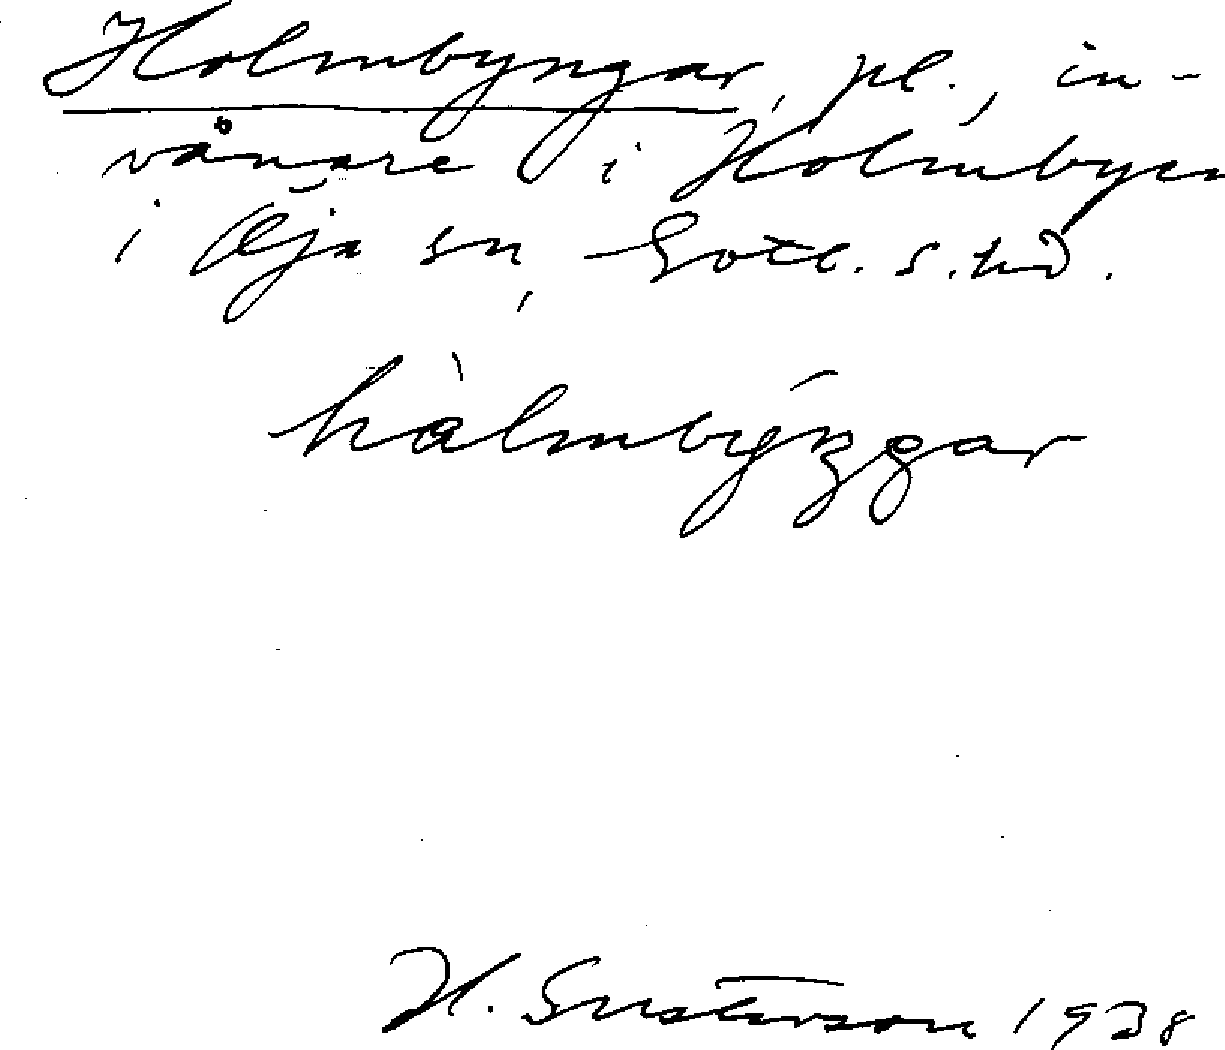 Holmbyngar, pl., in-
vånare i Holmbyen
i Öja sn, Gotl. s. hd.
hàlmbýŋgar
H. Gustavson 1938